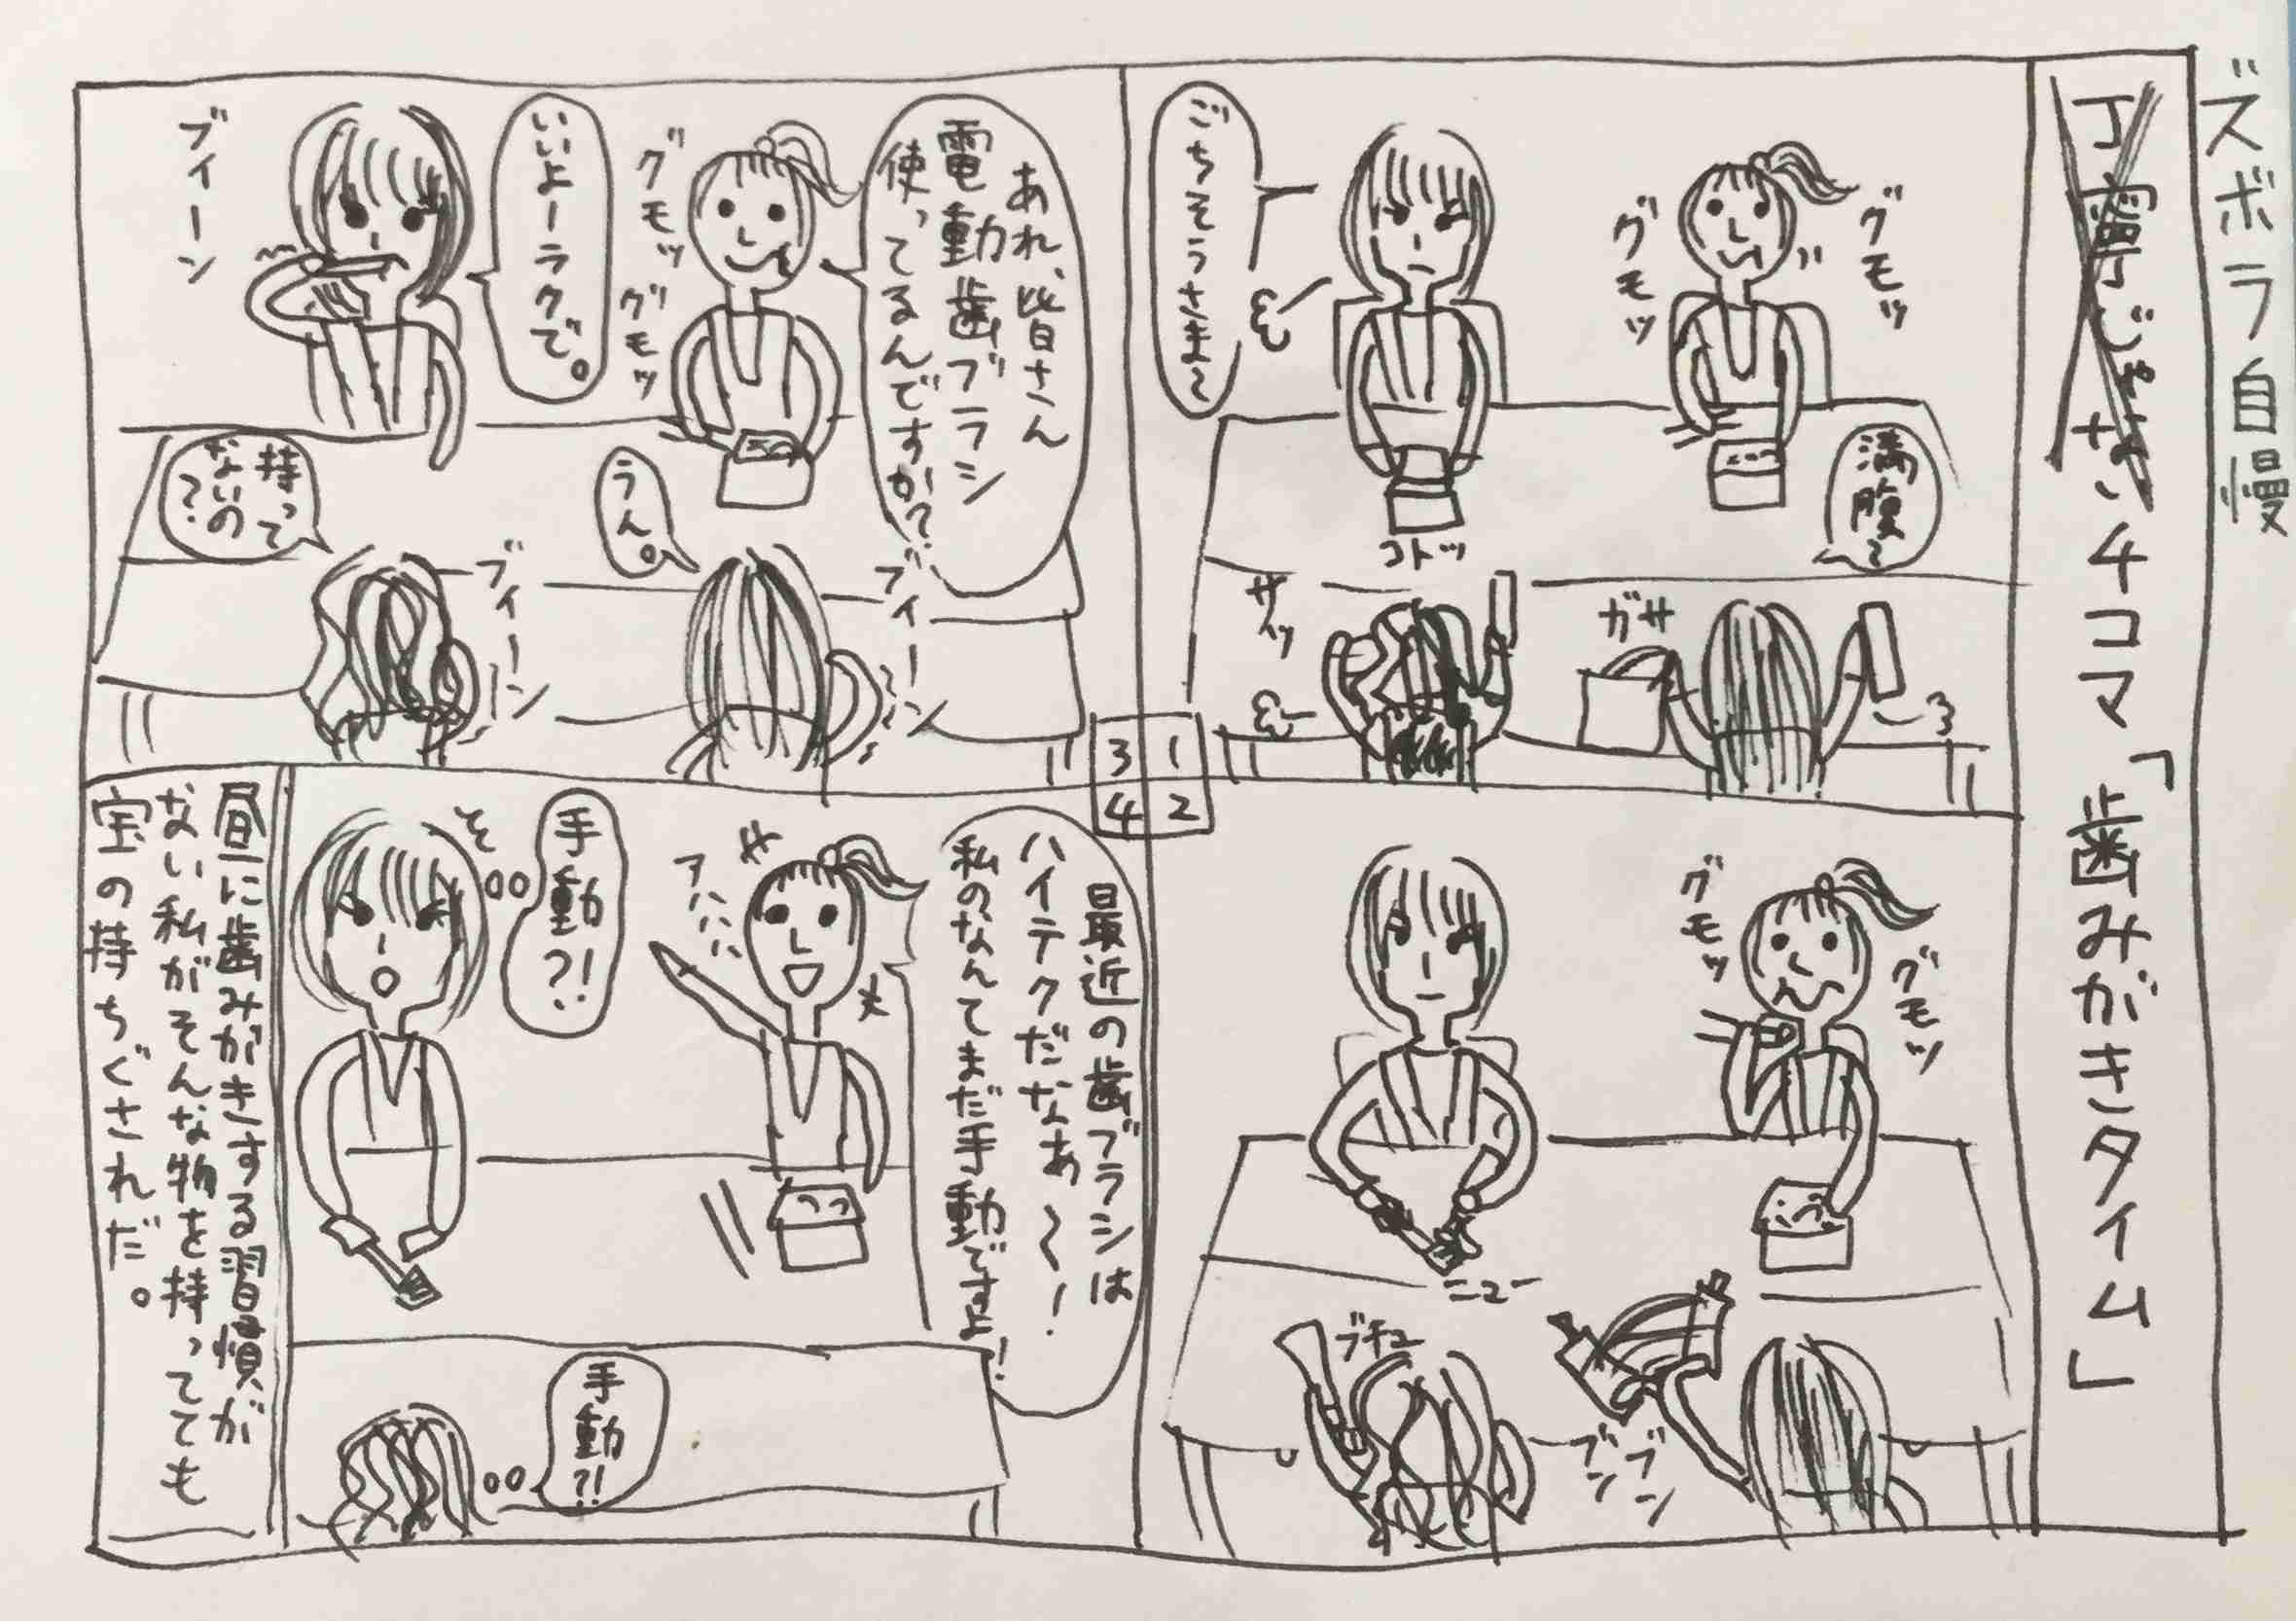 ズボラ自慢
丁寧じゃない4コマ「歯みがきタイム」
1
2
3
4
グモッ
グモッ
ごちそうさま〜
満腹〜
コトッ
ガサ
サッ
グモッ
グモッ
ニュー
ブチュ
ブンブン
あれ、皆さん
電動歯ブラシ
使ってるんですか?
グモッ
グモッ
いいよーラクで。
ブィーン
うん。
ブィーン
持って
ないの
?
ブィーン
最近の歯ブラシは
ハイテクだなぁ〜〜!
私のなんてまだ手動ですよ!
アハハハ
手動?!
手動?!
昼に歯みがきする習慣が
ない私がそんな物を持ってても
宝の持ちぐされだ。